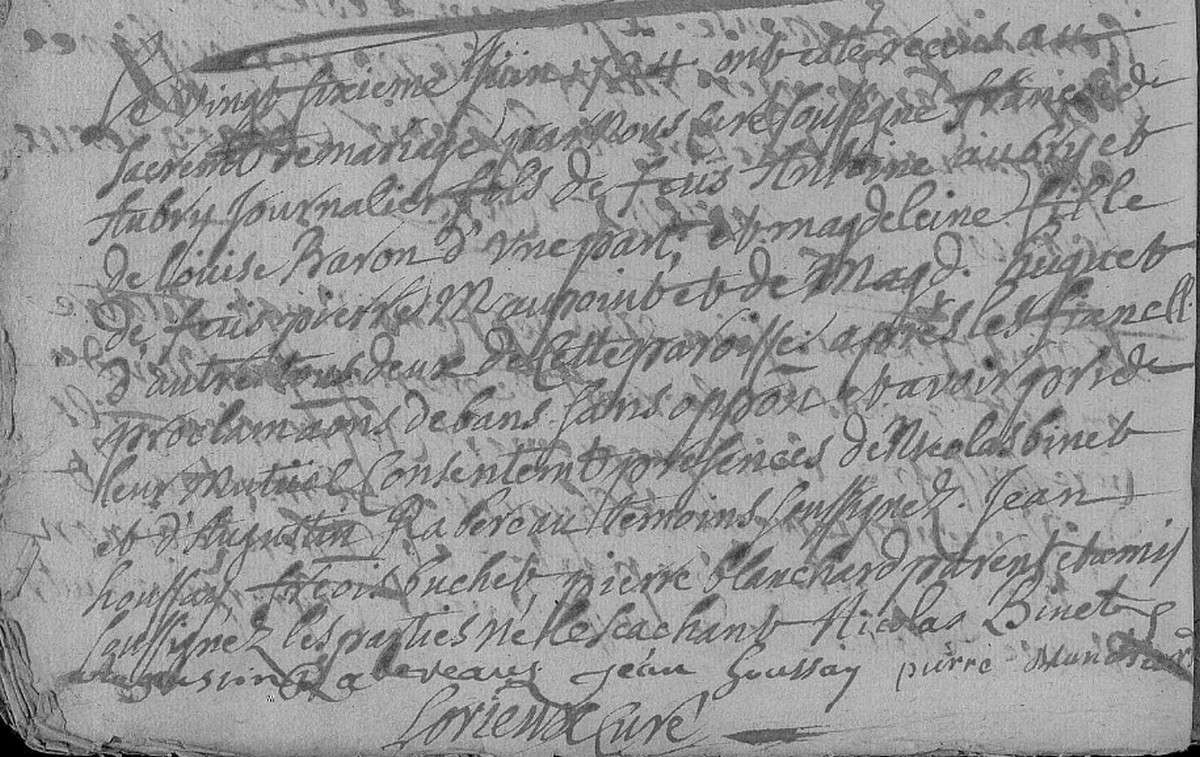 Le vingt sixieme Juin 1724 ont esté receus au
sacremt de mariage par nous curé soussigné françois
Aubry Journalier fils de feus Antoine aubry et
de Louise Baron d'vne part, et magdeleine fille
de feus pierre Maupoint et de Magd. huguet
d'autre tous deux de cette paroisse. aprés les fiancelles
proclamaons de bans sans oppon et avoir pris
leur mutuel consentemt presences de Nicolas binet
et d'Augustin Rabereau temoins soussignez. Jean
houssay, frcois buchet, pierre blanchard parents et amis
soussignez les parties ne le scachant Nicolas Binet
Rabereaus jean houssay pierre
Curé